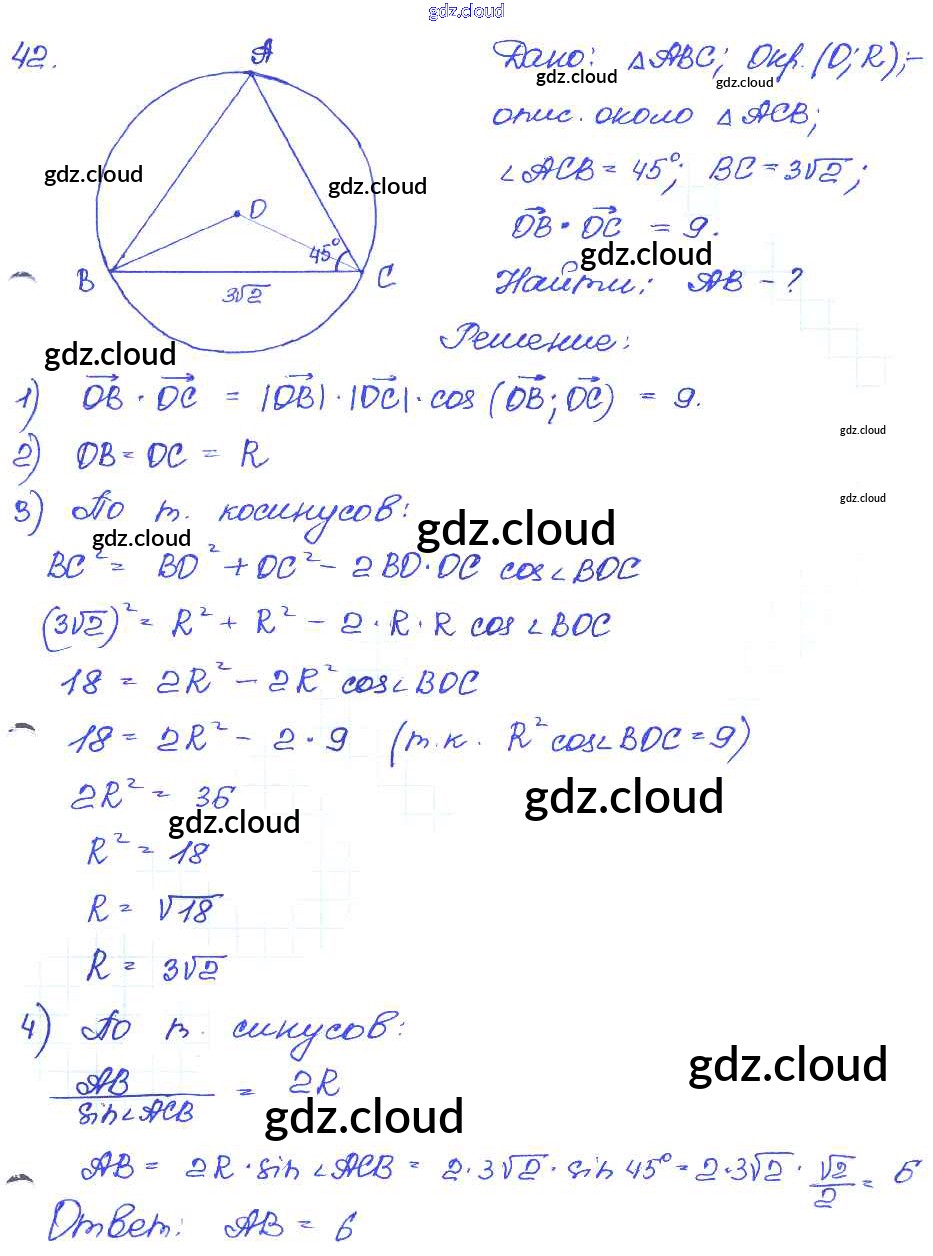 gdz.cloud
42.
A
B
C
O
45°
3√2
Дано: △ABC; Окр.(O;R);-
gdz.cloud gdz.cloud
опис. около △ACB;
∠ACB = 45°; BC = 3√2;
gdz.cloud gdz.cloud
OB⃗ · OC⃗ = 9.
gdz.cloud
Найти: AB - ?
Решение:
gdz.cloud
1) OB⃗ · OC⃗ = |OB⃗|·|OC⃗|·cos(OB⃗; OC⃗) = 9.
gdz.cloud
2) OB = OC = R
gdz.cloud
3) По т. косинусов:
gdz.cloud gdz.cloud
BC² = BO² + OC² - 2BO·OC cos∠BOC
(3√2)² = R² + R² - 2·R·R cos∠BOC
18 = 2R² - 2R² cos∠BOC
18 = 2R² - 2·9 (т.к. R² cos∠BOC = 9)
2R² = 36
gdz.cloud gdz.cloud
R² = 18
R = √18
R = 3√2
4) По т. синусов:
gdz.cloud
AB/sin∠ACB = 2R
gdz.cloud
AB = 2R·sin∠ACB = 2·3√2·sin45° = 2·3√2·√2/2 = 6
Ответ: AB = 6